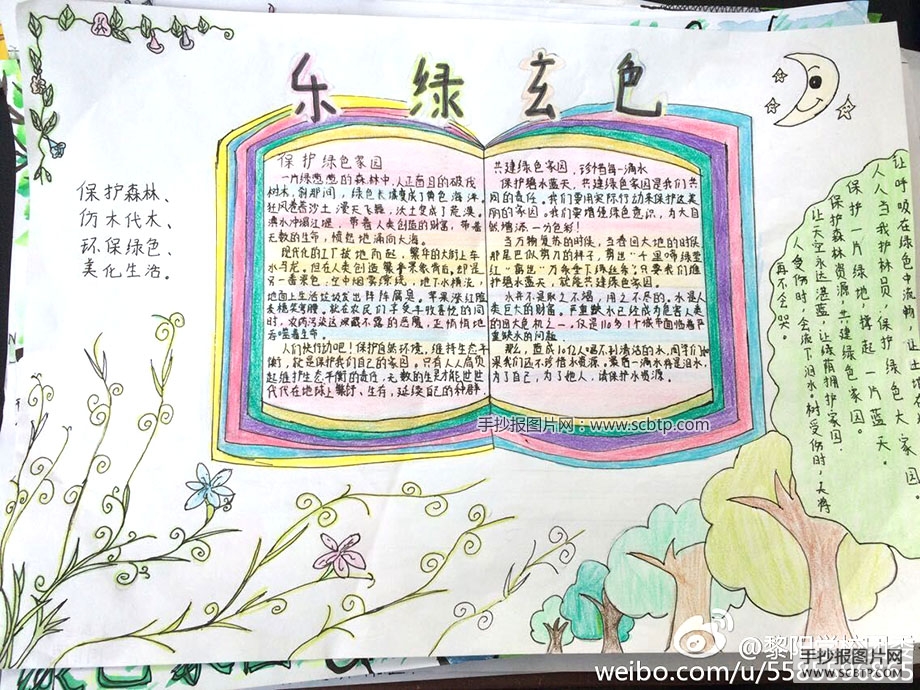 乐绿玄色
保护森林、
仿木代木、
环保绿色、
美化生活。
保护绿色家园
一片绿葱葱的森林中,人正盲目的砍伐
树木,刹那间,绿色长墙变成了黄色海洋
狂风卷着沙土漫天飞舞,沃土变成了荒漠。
洪水冲塌江堤,带着人类创造的财富,带着
无数的生命,愤怒地涌向大海。
现代化的工厂拔地而起,繁华的大街上车
水马龙。但在人类创造繁荣景象背后,却是
另一番景色,空中烟雾缭绕,地下水横流,
地面上生活垃圾发出阵阵腐臭。苹果涨红脸
麦穗笑弯腰。就在农民们享受丰收喜悦的同
时,农药污染这深藏不露的恶魔,正悄悄地
吞噬着生命。
人们快行动吧!保护自然环境,维持生态平
衡,就是保护我们自己的家园。只有人人肩负
起维护生态平衡的责任,无数的生灵才能世世
代代在地球上繁衍、生存,延续自己的种群.
共建绿色家园,珍惜每一滴水
保护碧水蓝天,共建绿色家园是我们共
同的责任。我们要用实际行动来保护这美
丽的家园。我们要增强绿色意识,为大自
然增添一力色彩!
当万物复苏的时候,当春回大地的时候
那是巴似剪刀的样子,剪出“千里莺啼绿映
红”剪出“万条垂下绿丝绦”只要我们维
护碧水蓝天,就能共建绿色家园。
水并不是取之不竭,用之不尽的。水是人
类巨大的财富。严重缺水已经成为危害人类
的四大危机之一。仅是110多个城市面临着严
重缺水的问题.
那么,造成10亿人喝不到清洁的水,同学们如
果我们还不珍惜水资源,最后一滴水将是泪水,
为了自己,为了他人,请保护水资源.
让呼吸在绿色中流畅,让土地在
人人当我护林员,保护绿色大家园
保护一片绿地,撑起一片蓝天。
保护森林资源,共建绿色家园。
让天空永远湛蓝,让绿荫拥护家园.
人受伤时,会流下泪水。树受伤时,天将
再不会哭。
手抄报图片网:www.scbtp.com
weibo.com/u/55
手抄报图片网
WWW.SCBTP.COM